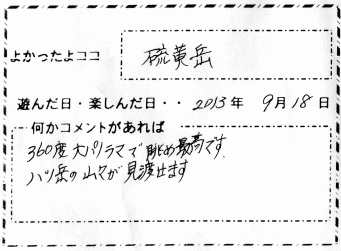 よかったよココ 硫黄岳
遊んだ日・楽しんだ日・・ 2013年 9月18日
何かコメントがあれば
360度大パノラマで眺め最高です
八ヶ岳の山々が見渡せます